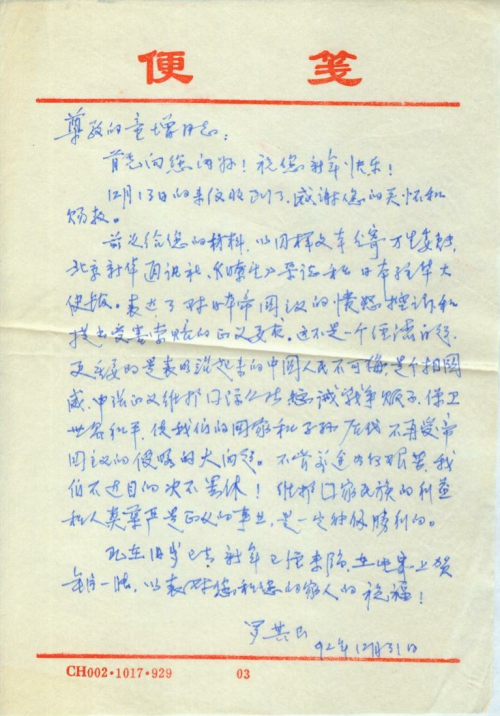 便 笺
尊敬的童增同志：
首先向您问好！祝您新年快乐！
12月13日的来信收到了，感谢您的关怀和
赐教。
前次给您的材料，以同样文本分寄万
北京新华通讯社、《瞭望》杂志和日本驻华大
使馆。表达了对日本帝国议的愤怒控诉和
提出受害索赔的正义要求。这不是一个经济问题，
更重要的是表明站起来的中国人民不可侮，是个扬国
威，申张正义维护国际公法惩诫战争贩子，保卫
世界和平，使我们的国家和子孙后代不再受帝
国议的侵略的大问题。不管前途如何艰苦，我
们不达目的决不罢休！维护国家民族的利益
和人类尊严是正义的事业，是一定能够胜利的。
现在旧岁已去新年已经来临，在此寄上贺
年卡一张，以表对您和您的家人的祝福！
罗其
92年12月31日
CH002·1017·929 03